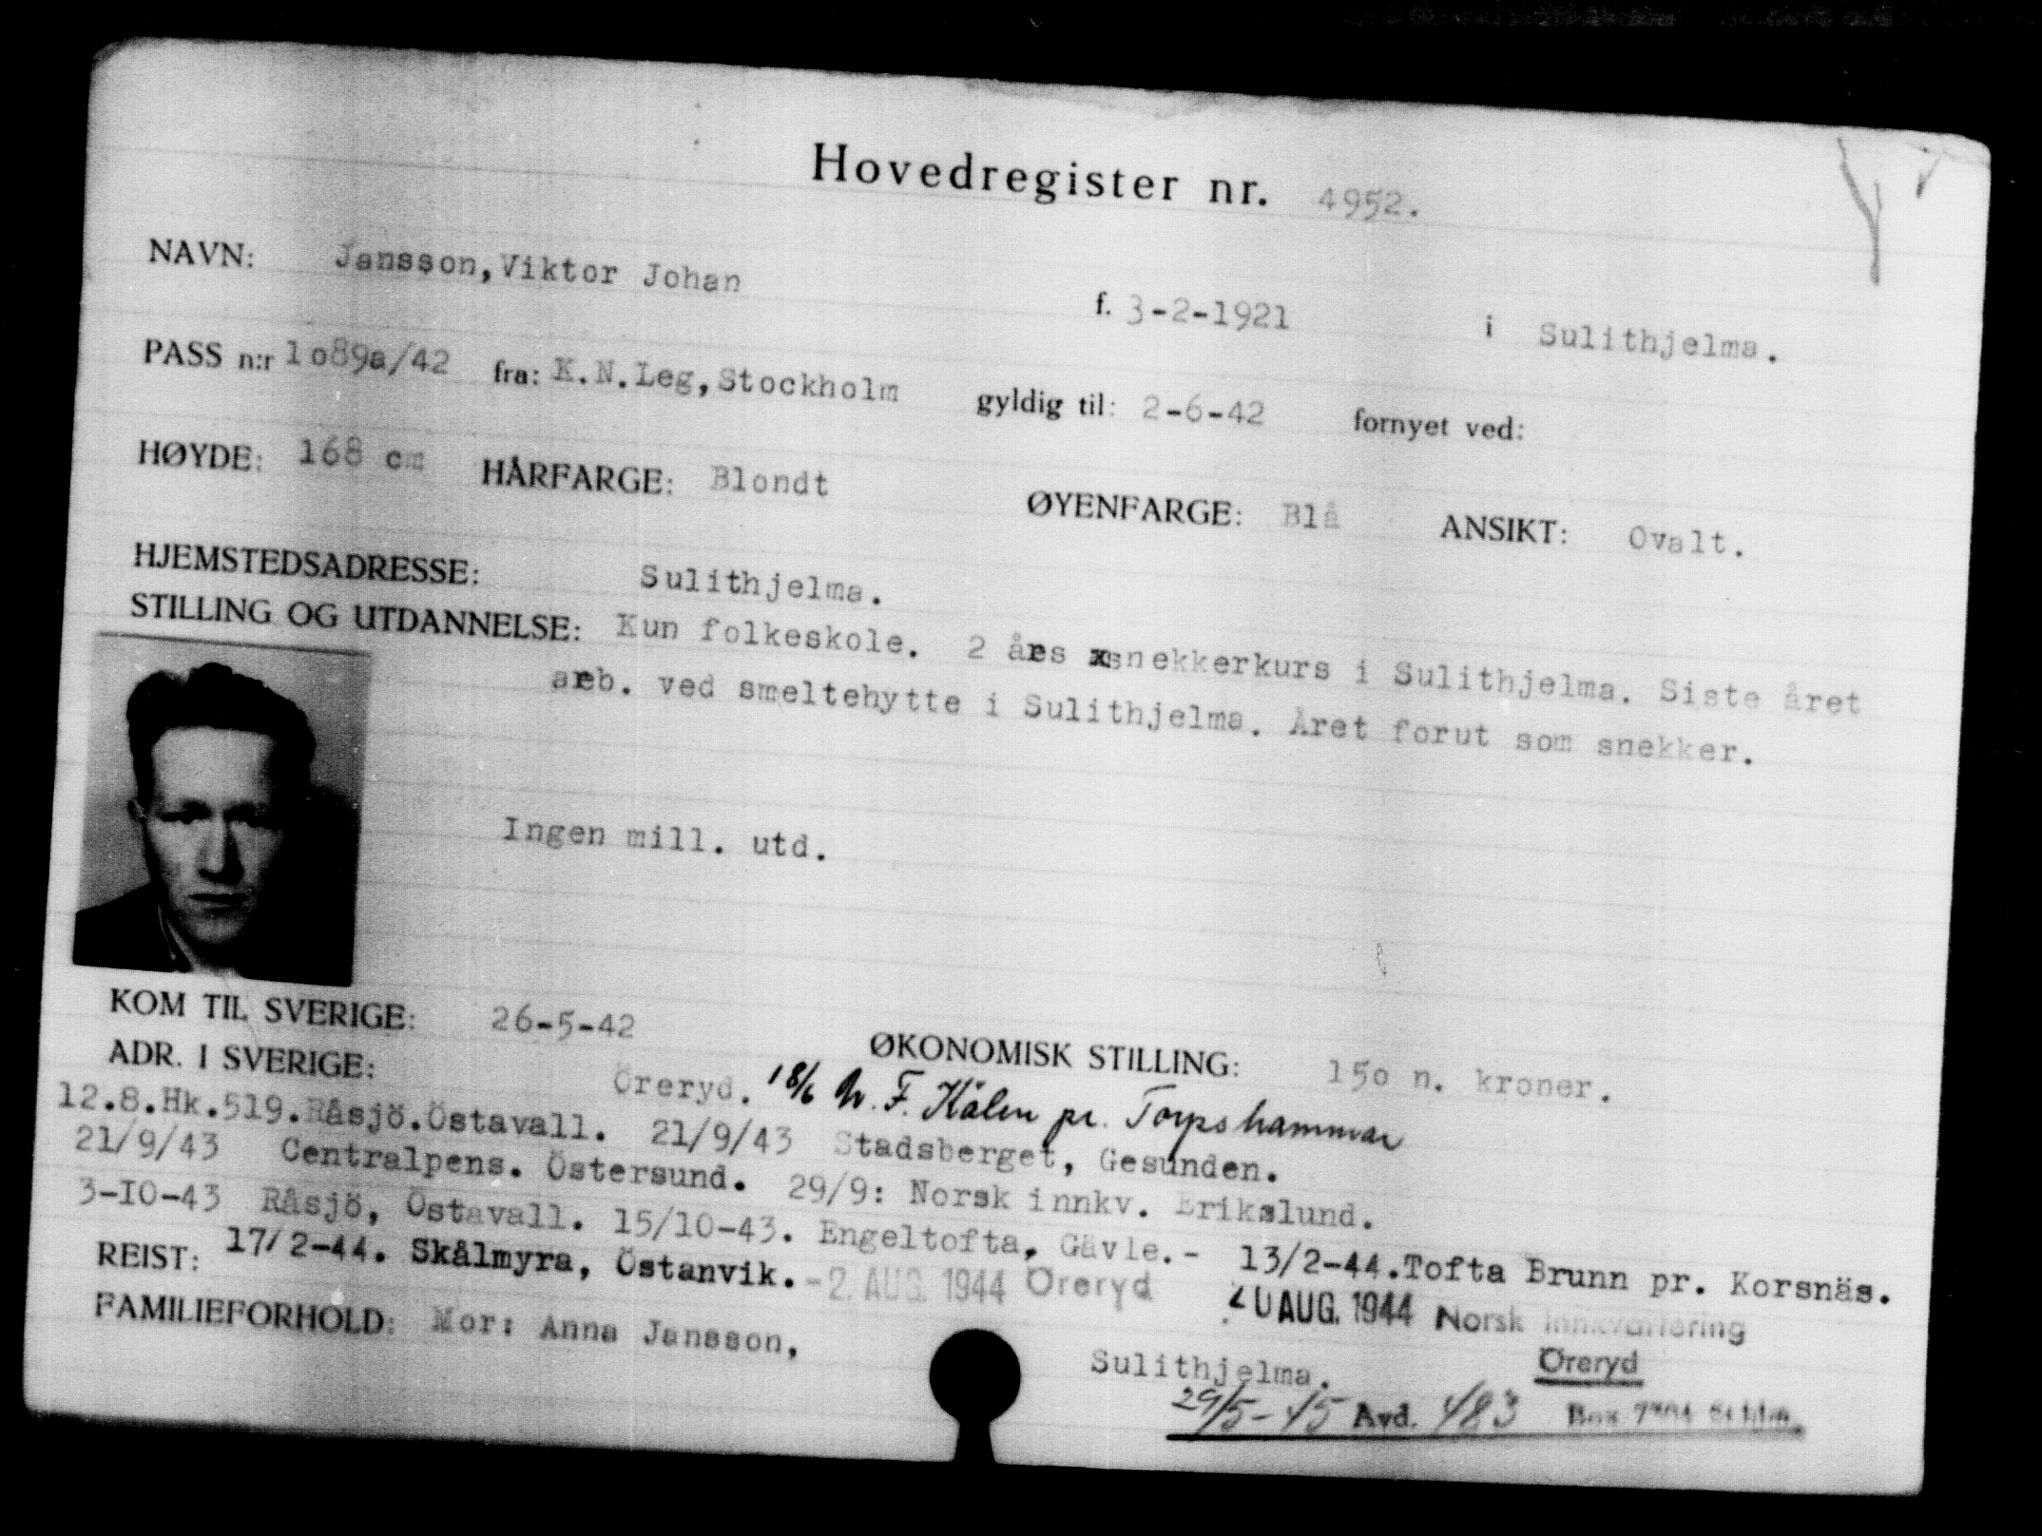 Hovedregister nr. 4952.
NAVN: Jansson,Viktor Johan f. 3-2-1921 i Sulithjelma.
PASS n:r 1o89a/42 fra: K.N.Leg,Stockholm gyldig til: 2-6-42 fornyet ved:
HØYDE: 168 cm HÅRFARGE: Blondt ØYENFARGE: Blå ANSIKT: Ovalt.
HJEMSTEDSADRESSE: Sulithjelma.
STILLING OG UTDANNELSE: Kun folkeskole. 2 års snekkerkurs i Sulithjelma. Siste året
arb. ved smeltehytte i Sulithjelma. Året forut som snekker.
Ingen mill. utd.
KOM TIL SVERIGE: 26-5-42 ØKONOMISK STILLING: 15o n. kroner.
ADR. I SVERIGE: Öreryd. 18/6 F. Kälen pr. Torpshammar
12.8.Hk.519.Råsjö.Östavall. 21/9/43 Stadsberget, Gesunden.
21/9/43 Centralpens. Östersund. 29/9: Norsk innkv. Erikslund.
3-IO-43 Råsjö, Östavall. 15/10-43. Engeltofta, Gävle.- 13/2-44.Tofta Brunn pr. Korsnäs.
REIST: 17/2-44. Skålmyra, Östanvik. -2. AUG. 1944 Öreryd 20 AUG. 1944 Norsk Innkvartering
Öreryd
FAMILIEFORHOLD: Mor: Anna Jansson, Sulithjelma.
29/5-45 Avd. 483 Box Sthlm.